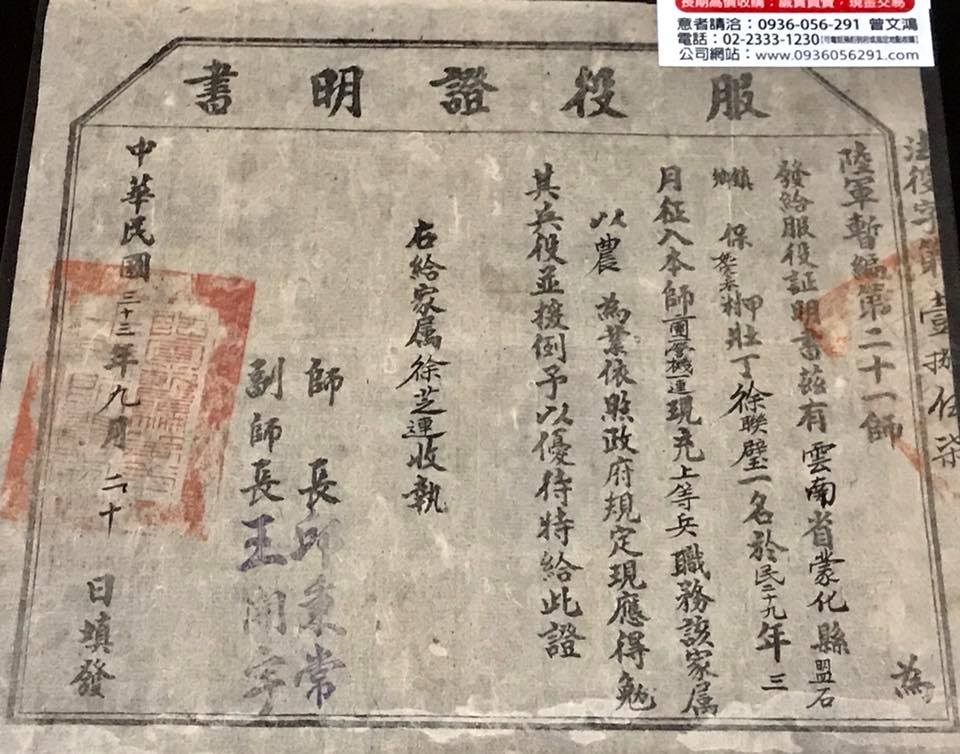 長期高價收購：誠實買賣，現金交易
意者請洽：0936-056-291 曾文鴻
電話：02-2333-1230
公司網站：www.0936056291.com
服役證明書
法役字第壹捌伍柒
陸軍暫編第二十一師 為
發給服役証明書茲有雲南省蒙化縣盟石
鎮鄉 保 甲 村 壯丁徐聯璧一名於民二十九年三
月征入本師 營機一連現充上等兵職務該家属
以農 為業依照政府規定現應得勉
其兵役並援例予以優待特給此證
右給家属徐芝連收執
師 長邱秉常
副師長王開宇
中華民國三十三年九月二十 日填發